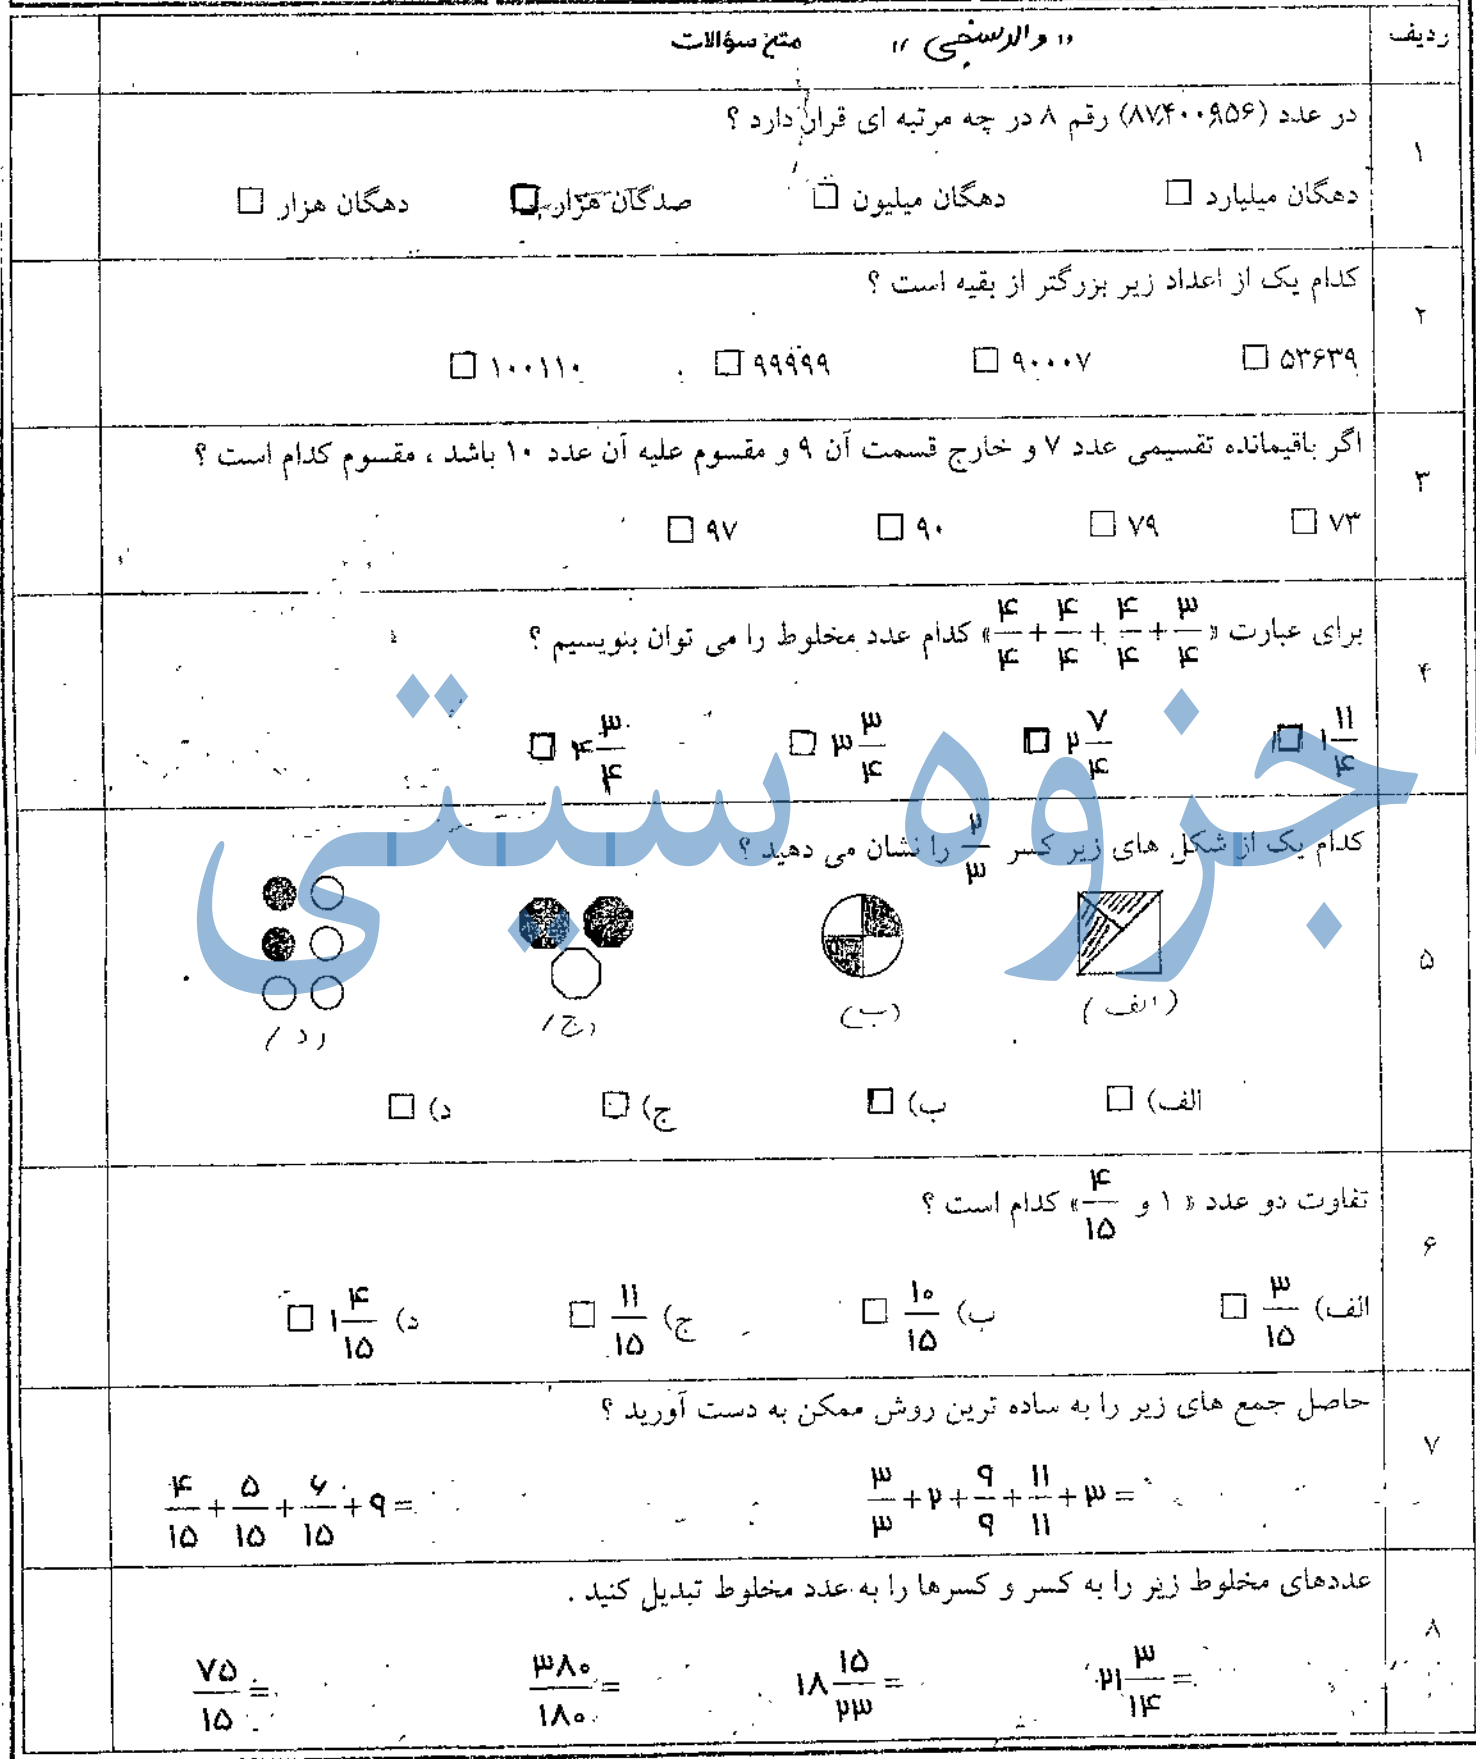 ردیف
" والدسنجی " متن سؤالات
۱
در عدد (۸۷,۴۰۰,۹۵۶) رقم ۸ در چه مرتبه ای قرار دارد ؟
دهگان میلیارد □ دهگان میلیون □ صدگان هزار □ دهگان هزار □
۲
کدام یک از اعداد زیر بزرگتر از بقیه است ؟
۵۳۶۳۹ □ ۹۰۰۰۷ □ ۹۹۹۹۹ □ ۱۰۰۱۱۰ □
۳
اگر باقیمانده تقسیمی عدد ۷ و خارج قسمت آن ۹ و مقسوم علیه آن عدد ۱۰ باشد ، مقسوم کدام است ؟
۷۳ □ ۷۹ □ ۹۰ □ ۹۷ □
۴
برای عبارت « ۴/۴ + ۴/۴ + ۴/۴ + ۳/۴ » کدام عدد مخلوط را می توان بنویسیم ؟
۱ ۱۱/۴ □ ۲ ۷/۴ □ ۳ ۳/۴ □ ۴ ۳/۴ □
جزوه سیتی
۵
کدام یک از شکل های زیر کسر ۲/۳ را نشان می دهید ؟
(الف) (ب) (ج) (د)
الف) □ ب) □ ج) □ د) □
۶
تفاوت دو عدد « ۱ و ۴/۱۵ » کدام است ؟
الف) ۳/۱۵ □ ب) ۱۰/۱۵ □ ج) ۱۱/۱۵ □ د) ۱ ۴/۱۵ □
۷
حاصل جمع های زیر را به ساده ترین روش ممکن به دست آورید ؟
۳/۳ + ۲ + ۹/۹ + ۱۱/۱۱ + ۳ = ۴/۱۵ + ۵/۱۵ + ۶/۱۵ + ۹ =
۸
عددهای مخلوط زیر را به کسر و کسرها را به عدد مخلوط تبدیل کنید .
۲۱ ۳/۱۴ = ۱۸ ۱۵/۲۳ = ۳۸۰/۱۸۰ = ۷۵/۱۵ =